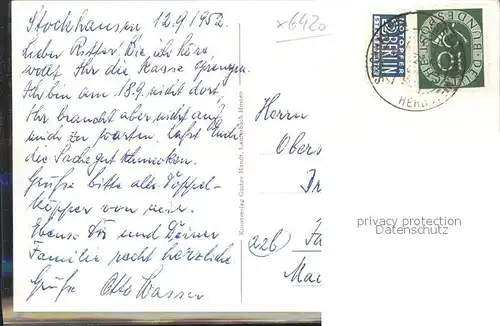 Stockhausen 12.9.1952.
Lieber Ritter! Wie ich höre
wollt Ihr die Kasse sprengen.
Ich bin am 18.9. nicht dort.
Ihr braucht aber nicht auf
mich zu warten. Laßt Euch
die Sache gut schmecken.
Grüße bitte alle Doppel-
köpper von mir.
Ebenso Dir und Deiner
Familie recht herzliche
Grüße Otto Wasser
x6420
Kunstverlag Gustav Mandt, Lauterbach Hessen
NOTOPFER
2 BERLIN
STEUERMARKE
DEUTSCHE BUNDESPOST
10
HERB
Herrn
Obers
(22b)
Ma
privacy protection
Datenschutz